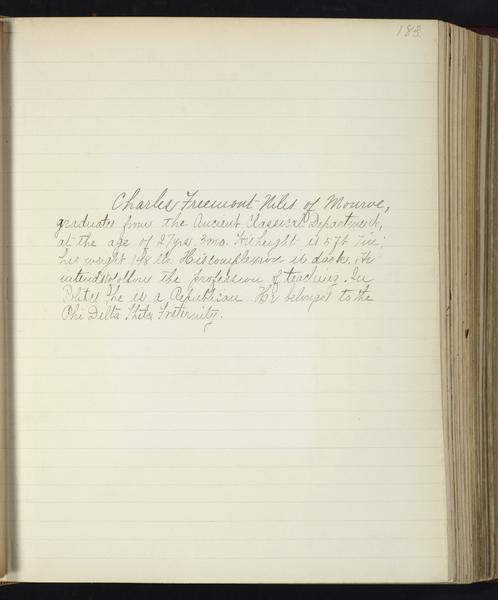 183.
Charles Freemont Niles of Monroe,
graduates from the Ancient Classical Department,
at the age of 27yrs 3mo. His height is 5ft 7in;
his weight 148 lbs. His complexion is dark. He
intends to follow the profession of teaching. In
Politics he is a Republican. He belongs to the
Phi Delta Theta Fraternity.